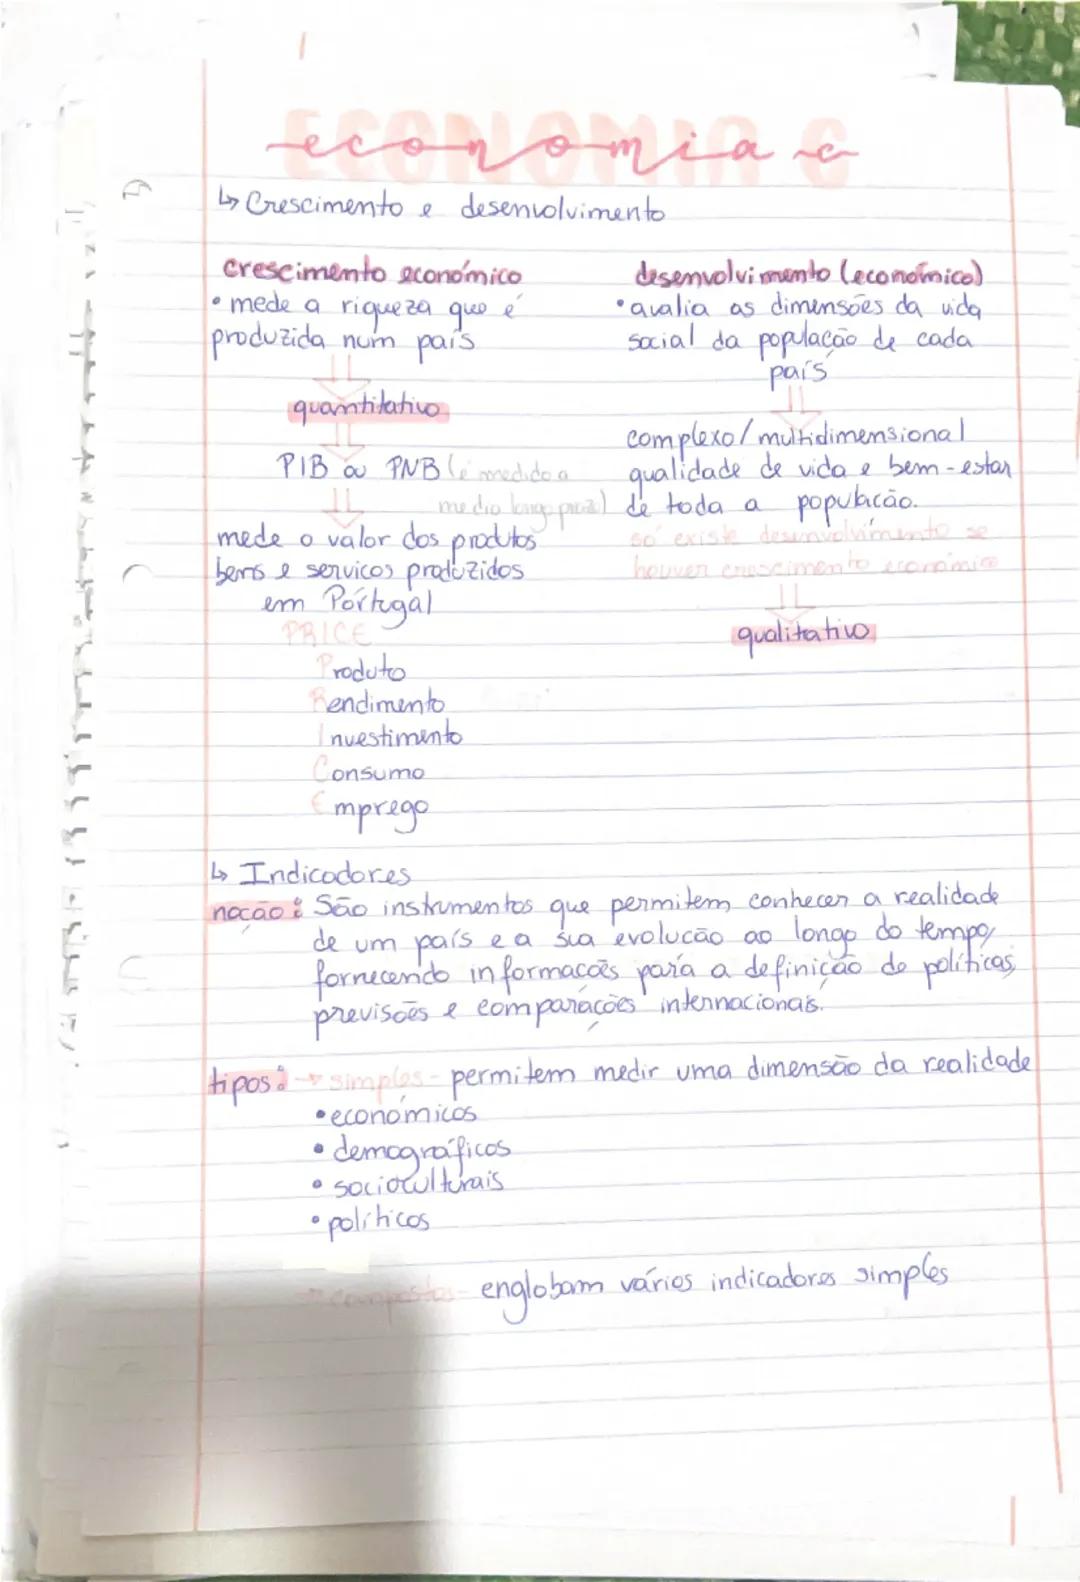 ECONOMIA C
economia c
↳ Crescimento e desenvolvimento
crescimento económico
• mede a riqueza que é
produzida num país
quantitativo
PIB ou PNB (é medido a
medio longo prazo)
mede o valor dos produtos
bens e serviços produzidos
em Portugal
PRICE
Produto
Rendimento
Investimento
Consumo
Emprego
desenvolvimento (económico)
• avalia as dimensões da vida
social da população de cada
país
complexo/multidimensional
qualidade de vida e bem-estar
de toda a população.
só existe desenvolvimento se
houver crescimento económico
qualitativo
↳ Indicadores
noção: São instrumentos que permitem conhecer a realidade
de um país e a sua evolução ao longo do tempo,
fornecendo informações para a definição de políticas,
previsões e comparações internacionais.
tipos: → simples - permitem medir uma dimensão da realidade
• económicos
• demográficos
• socioculturais
• políticos
→ compostos - englobam vários indicadores simples